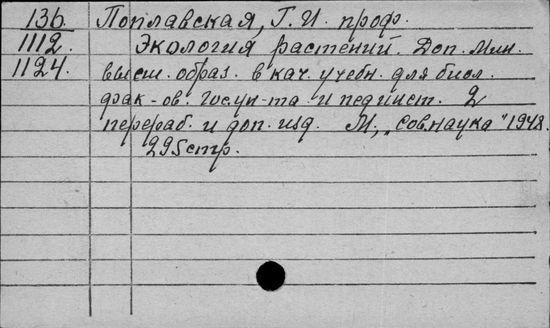 136. Поплавская, Г. И. проф.
1112. Экология растений. Доп. Мин.
1124. высш. образ. в кач. учебн. для биол.
фак-ов. Госун-та и пединст. 2
перераб. и доп. изд. М., "Сов.наука" 1948.
295 стр.